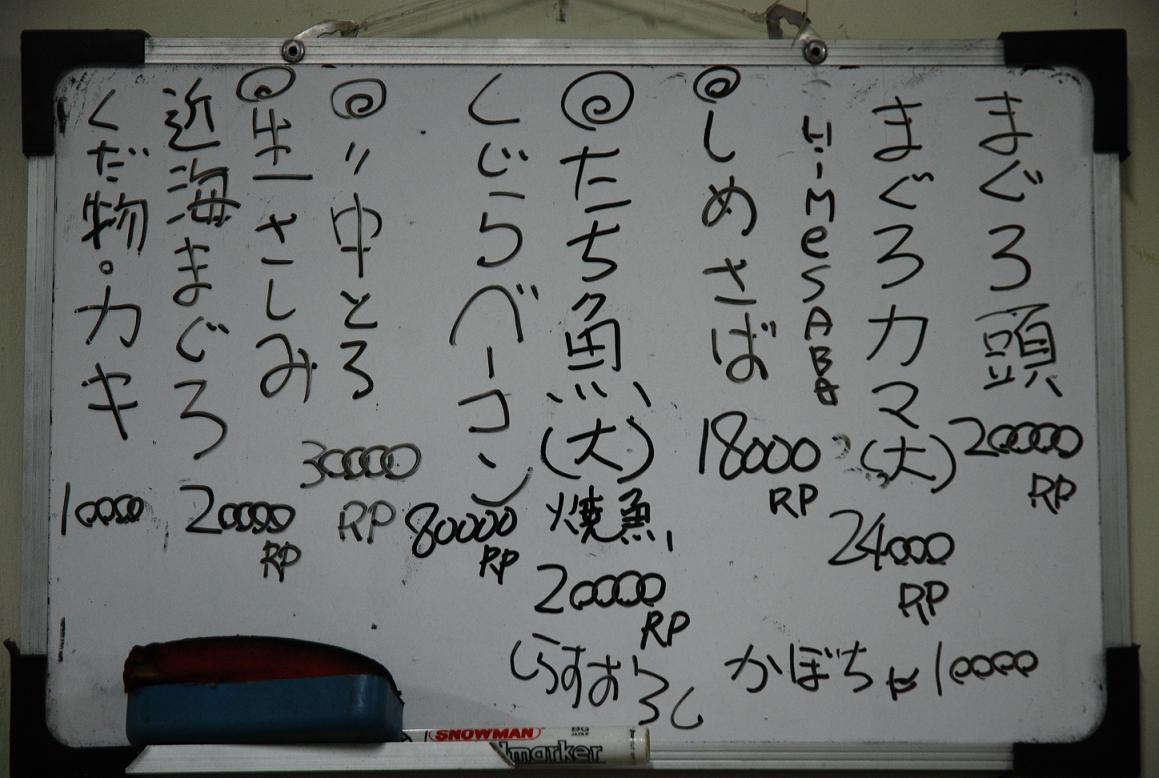 まぐろ頭 20000 RP
まぐろカマ(大) 24000 RP
◎しめさば 18000 RP
◎たち魚(大)焼魚 20000 RP
くじらベーコン 80000 RP
◎〃中とろ 30000 RP
◎生さしみ
近海まぐろ 20000 RP
くだ物・カキ 10000
しらすおろし
かぼちゃ 10000
SNOWMAN
marker